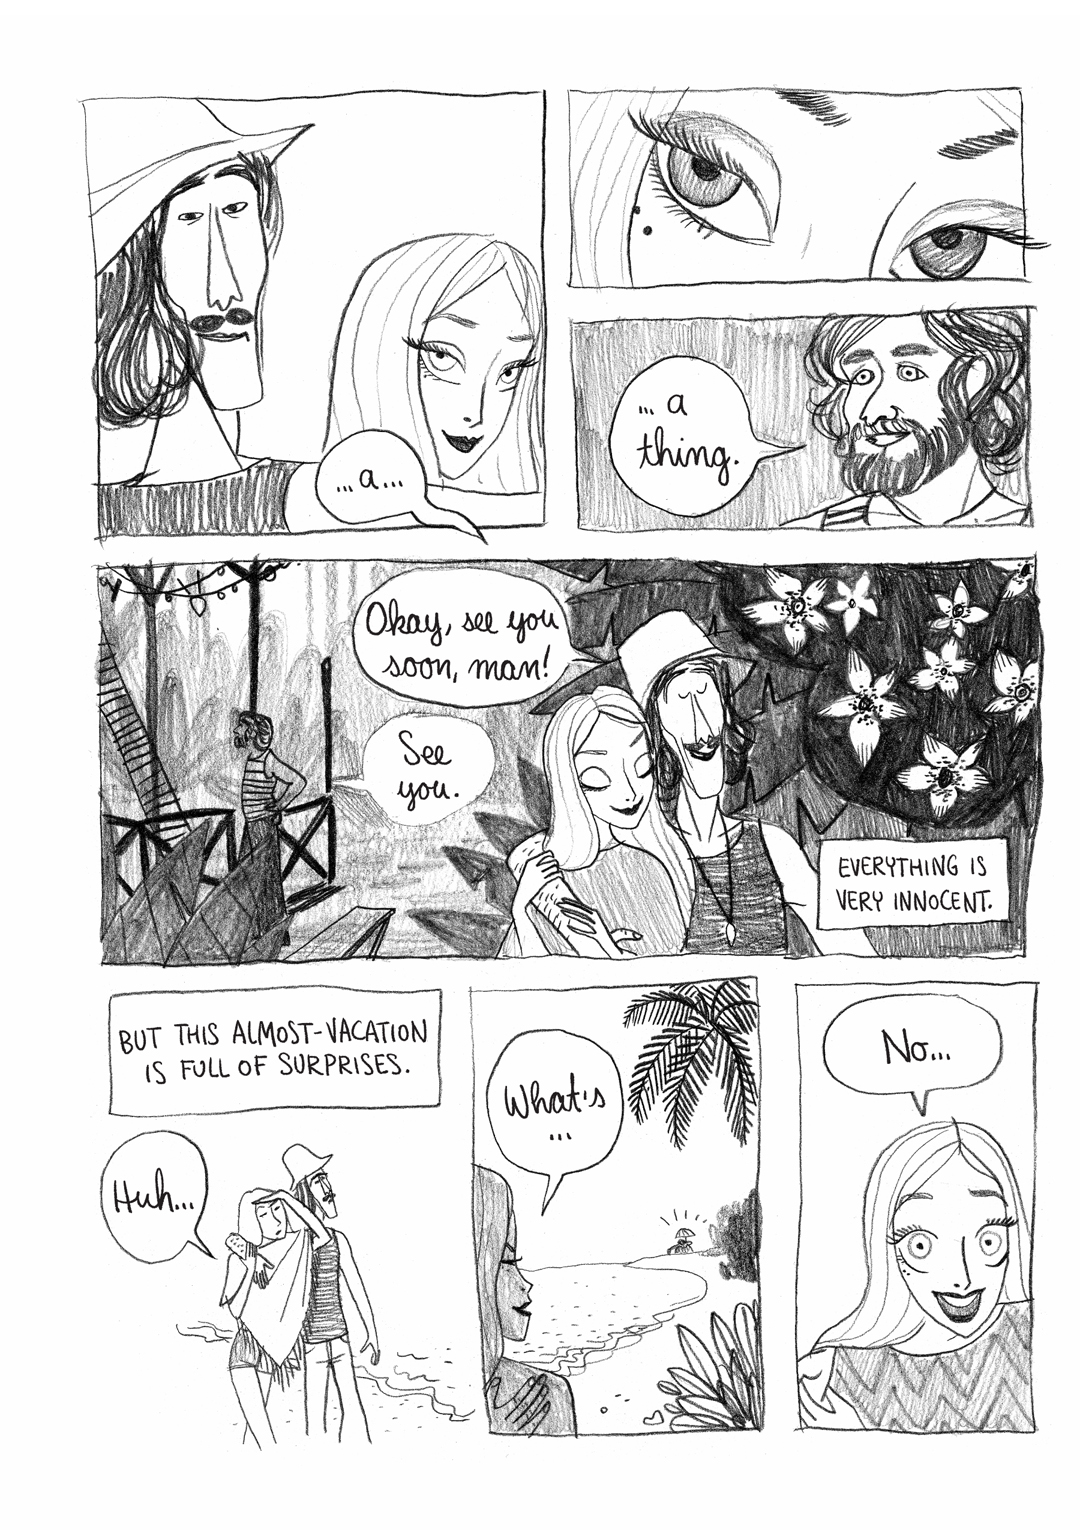 ... a ...
... a
thing.
Okay, see you
soon, man!
See
you.
EVERYTHING IS
VERY INNOCENT.
BUT THIS ALMOST-VACATION
IS FULL OF SURPRISES.
Huh...
What's
...
No...